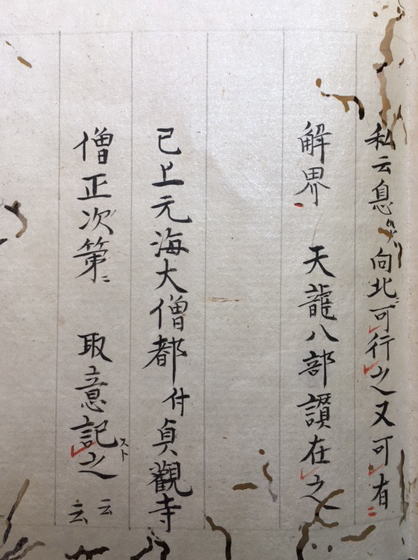 私云息向北可行之又可有
解界 天龍八部讃在之
已上元海大僧都付貞觀寺
僧正次第ニ 取意記之スト云云